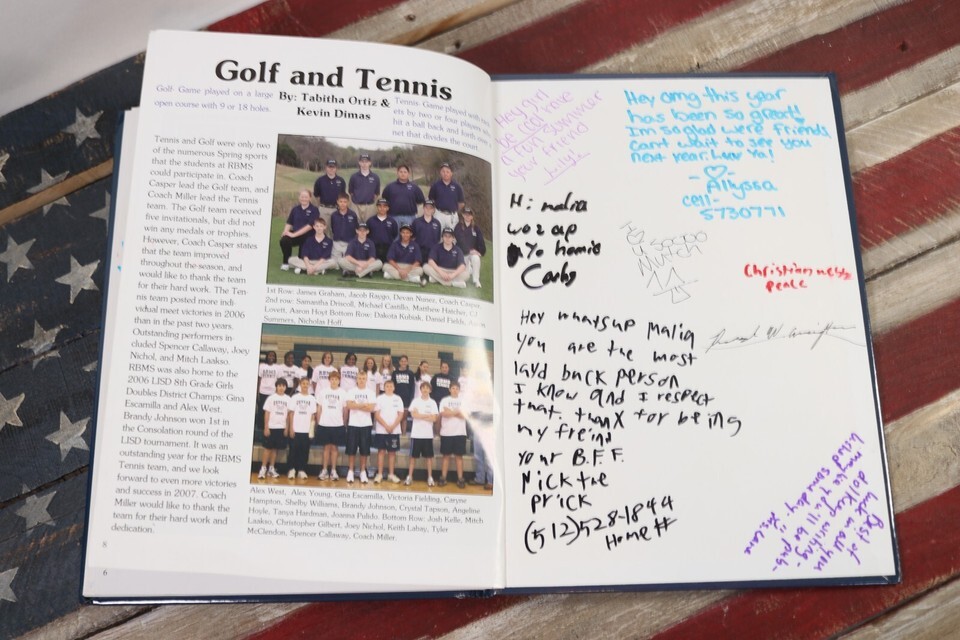 Golf and Tennis
By: Tabitha Ortiz &
Kevin Dimas
Golf- Game played on a large
open course with 9 or 18 holes.
Tennis- Game played with
ets by two or four players
hit a ball back and forth over a
net that divides the court.
Tennis and Golf were only two
of the numerous Spring sports
that the students at RBMS
could participate in. Coach
Casper lead the Golf team, and
Coach Miller lead the Tennis
team. The Golf team received
five invitationals, but did not
win any medals or trophies.
However, Coach Casper states
that the team improved
throughout the season, and
would like to thank the team
for their hard work. The Ten-
nis team posted more indi-
vidual meet victories in 2006
than in the past two years.
Outstanding performers in-
cluded Spencer Callaway, Joey
Nichol, and Mitch Laakso.
RBMS was also home to the
2006 LISD 8th Grade Girls
Doubles District Champs: Gina
Escamilla and Alex West.
Brandy Johnson won 1st in
the Consolation round of the
LISD tournament. It was an
outstanding year for the RBMS
Tennis team, and we look
forward to even more victories
and success in 2007. Coach
Miller would like to thank the
team for their hard work and
dedication.
1st Row: James Graham, Jacob Rapjo, Devan Nunez, Coach Casper
2nd row: Samantha Driscoll, Michael Carrillo, Matthew Hatcher, CJ
Lovett, Aaron Hoyt Bottom Row: Dakota Kubiak, Daniel Fields,
Summers, Nicholas Hoff.
Alex West, Alex Young, Gina Escamilla, Victoria Fielding, Caryne
Hampton, Shelby Williams, Brandy Johnson, Crystal Tapson, Angeline
Hoyle, Tanya Hardman, Joanna Pulido. Bottom Row: Josh Kelle, Mitch
Laakso, Christopher Gilbert, Joey Nichol, Keith Lahay, Tyler
McClendon, Spencer Callaway, Coach Miller
8
6
Hey girl
be cool have
a fun summer
your friend
Hey omg this year
has been so great!
Im so glad were friends
cant wait to see you
next year. Luv Ya!
- Allyssa
cell-
5730771
Hi malia
woz up
Yo homie
Carlos
Christian
peace
Hey whats up Malia
you are the most
layd back person
I know and I respect
that. thanx for being
my freind
your B.F.F.
Nick the
prick
(512)528-1844
Home #
Best of
luck in all you
do! Keep writing
maybe you'll be pub-
lished some day!